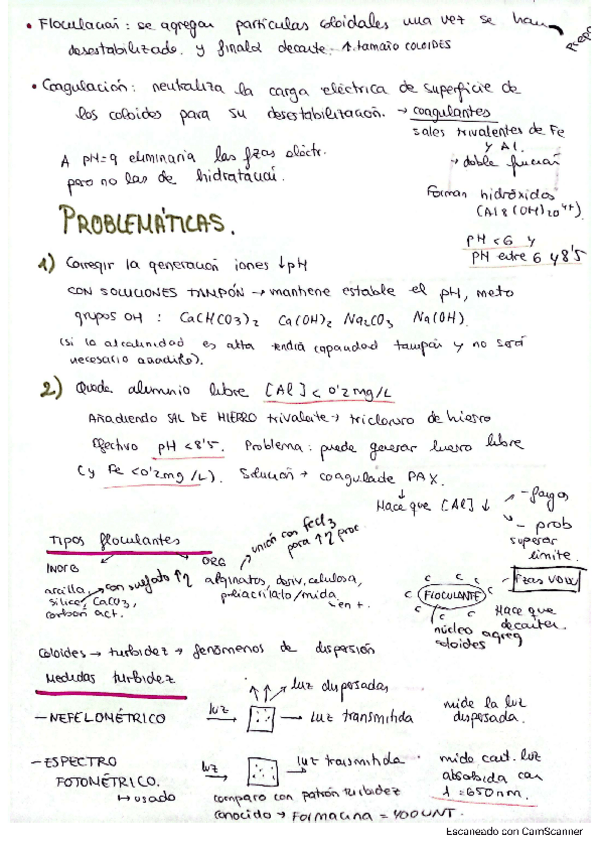 • Floculación: se agregan partículas coloidales una vez se han
desestabilizado. y finald decante. ↑.tamaño COLOIDES
• Coagulación: neutraliza la carga eléctrica de superficie de
los coloides para su desestabilización. → coagulantes
sales trivalentes de Fe
y Al.
→ doble función
A pH=9 eliminaria las fzas eléctr.
pero no las de hidratación.
Forman hidróxidos
(Al8(OH)20 4+)
pH <6 y
pH entre 6 y 8'5
PROBLEMÁTICAS.
1) Corregir la generación iones ↓pH
CON SOLUCIONES TAMPÓN → mantiene estable el pH, meto
grupos OH : Ca(HCO3)2 Ca(OH)2 Na2CO3 Na(OH).
(si la alcalinidad es alta tendrá capacidad tampón y no será
necesario añadirlo).
2) Queda aluminio libre [Al] < 0'2mg/L
Añadiendo SAL DE HIERRO trivalente → tricloruro de hierro
Efectivo pH <8'5. Problema: puede generar hierro libre
(y Fe <0'2mg/L). Solución → coagulade PAX.
Hace que [Al] ↓
prob
superar
límite.
Tipos floculantes
INORG
arcilla, → con sulfato ↑η
sílice, CaCO3,
carbón act.
ORG
unión con FeCl3
para ↑η proc.
alginatos, deriv, celulosa,
poliacrilato/mida.
en +.
c c c c c c
FLOCULANTE
núcleo agreg
coloides
Fzas VDW
Hace que
decanten.
Coloides → turbidez → fenómenos de dispersión
Medidas turbidez
— NEFELOMÉTRICO
luz → luz dispersadas
→ luz transmitida
mide la luz
dispersada.
— ESPECTRO
FOTOMÉTRICO.
↦ usado
luz → luz trasmitida
comparo con patrón turbidez
conocido → Formacina = 400UNT.
mide cant. luz
absorbida con
λ = 650nm.
Escaneado con CamScanner